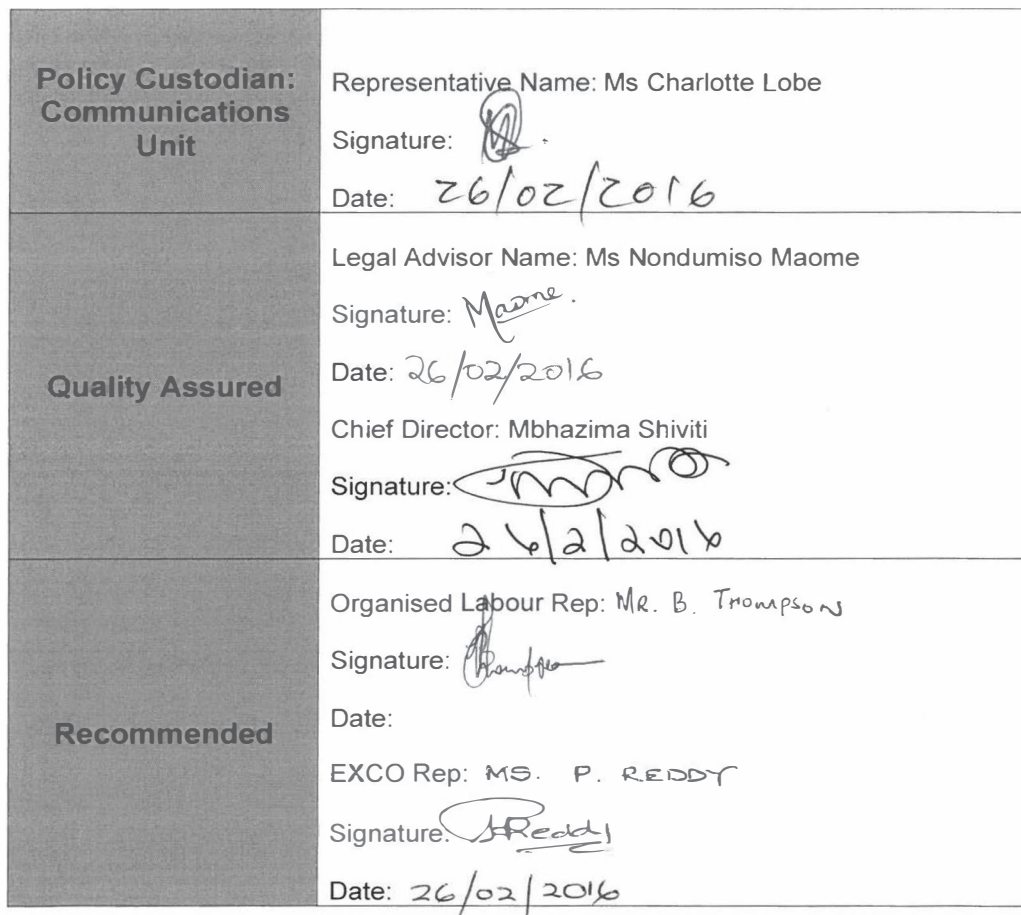 Policy Custodian:
Communications
Unit
Representative Name: Ms Charlotte Lobe
Signature:
Date: 26/02/2016
Quality Assured
Legal Advisor Name: Ms Nondumiso Maome
Signature: Maome.
Date: 26/02/2016
Chief Director: Mbhazima Shiviti
Signature:
Date: 26/2/2016
Recommended
Organised Labour Rep: MR. B. THOMPSON
Signature: Thompson
Date:
EXCO Rep: MS. P. REDDY
Signature: PReddy
Date: 26/02/2016